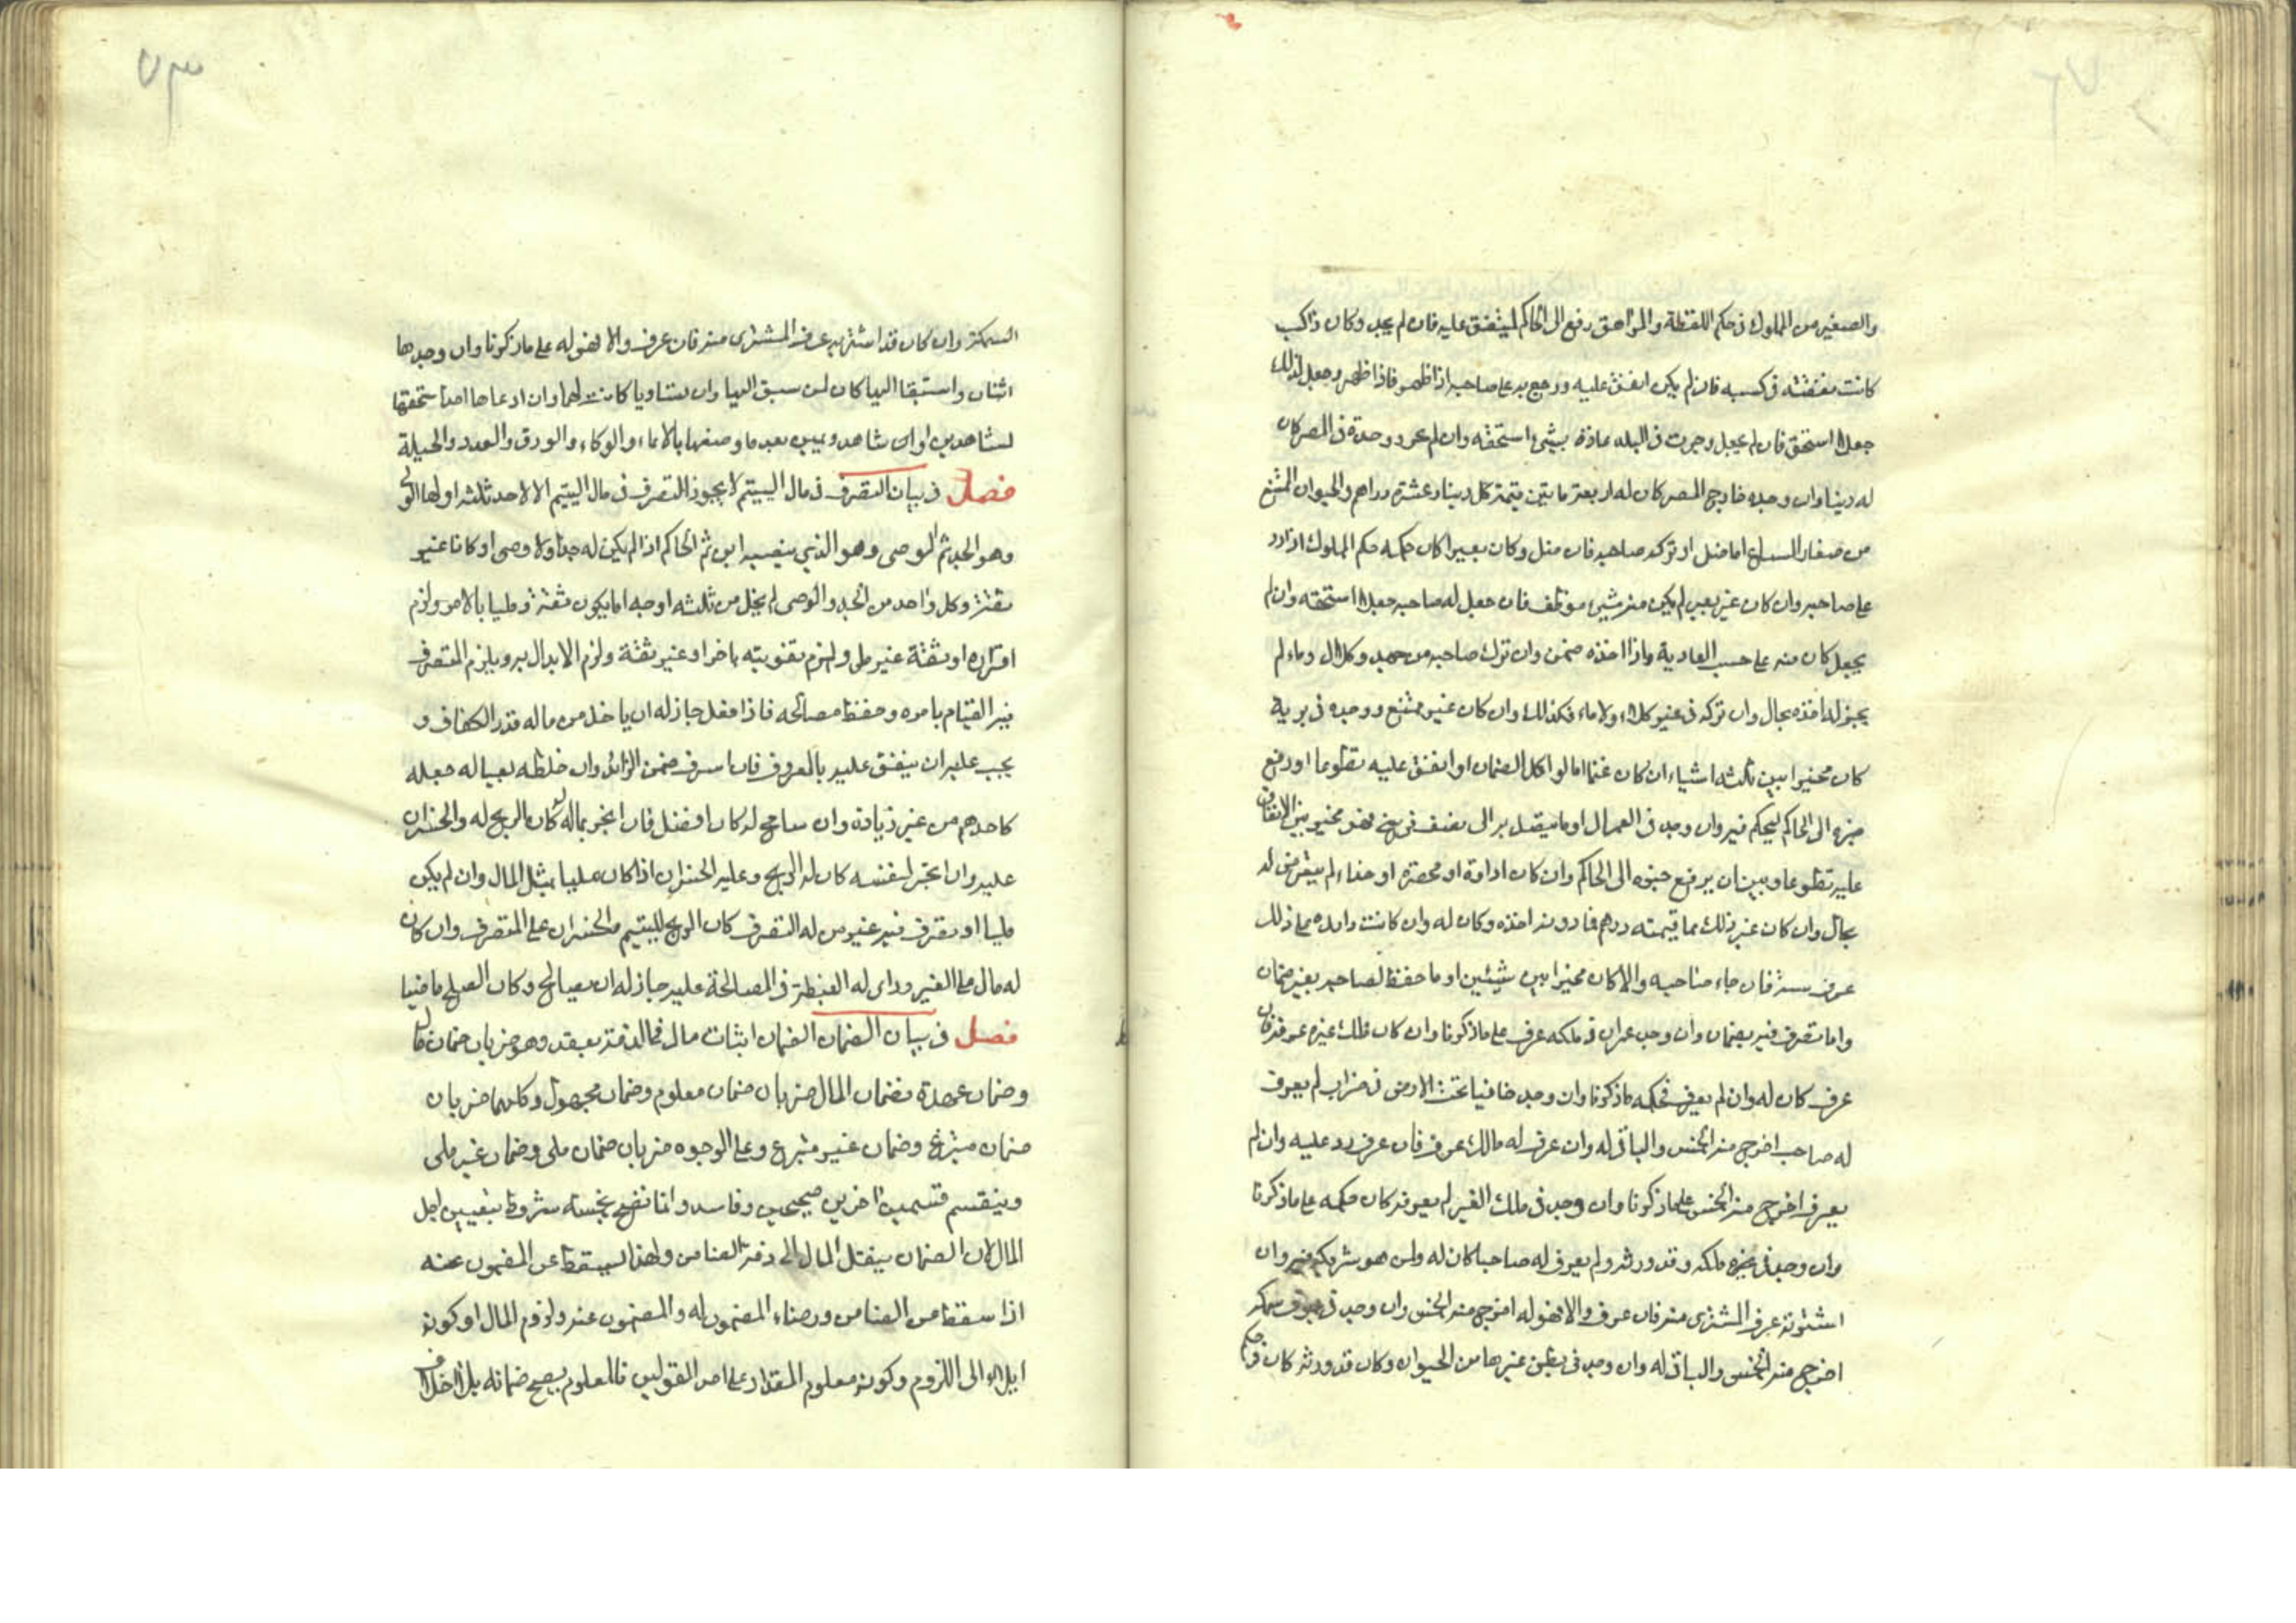 والصغير من المملوك في حكم اللقطة والمراهق رفع الى الحاكم لينفق عليه فان لم يجد وكان ذا كسب
كانت نفقته في كسبه فان لم يكن انفق عليه ورجع به على صاحبه اذا ظهر فاذا ظهر وجعل لذلك
جعلا استحق فان لم يجعل وجرت في البلد عادة بشئ استحقه وان لم تجر ووجده في المصر كان
له دينار وان وجده خارج المصر كان له اربعة دنانير قيمة كل دينار عشرة دراهم والحيوان الممتنع
من صغار السباع اما ضل او تركه صاحبه فان ضل وكان بعيرا كان حكمه حكم المملوك اذا رد
على صاحبه وان كان غير بعير لم يكن منه شئ موظف فان جعل له صاحبه جعلا استحقه وان لم
يجعل كان منه على حسب العادة واذا اخذه ضمن وان ترك صاحبه من جهد وكلال وماء لم
يجز له اخذه بحال وان تركه في غير كلاء ولا ماء فكذلك وان كان غير ممتنع ووجده في برية
كان مخيرا بين ثلثة اشياء ان كان غنما اما لو اكل الضمان او انفق عليه تطوعا او رفع
خبره الى الحاكم ليحكم فيه وان وجد في العمران او ما يتصل به الى نصف فرسخ فهو مخير بين الانفاق
عليه تطوعا وبين ان يرفع خبره الى الحاكم وان كان اداوة او مخصرة او حذاء لم يتعرض له
بحال وان كان غير ذلك مما قيمته درهم فما دونه اخذه وكان له وان كانت زايدة على ذلك
عرف سنة فان جاء صاحبه والا كان مخيرا بين شيئين اما حفظ لصاحبه بغير ضمان
واما تصرف فيه بضمان وان وجد عمران في ملكه عرف على ما ذكرنا وان كان ملك غيره عرفه فان
عرف كان له وان لم يعرف فحكمه ما ذكرنا وان وجد خافيا تحت الارض في خراب لم يعرف
له صاحب اخرج منه الخمس والباقي له وان عرف له مالك عرف فان عرف رد عليه وان لم
يعرف اخرج منه الخمس على ما ذكرنا وان وجد في ملك الغير لم يعرفه كان حكمه على ما ذكرنا
وان وجد في غيره ملكه وقد ورثه ولم يعرف له صاحبا كان له ولمن هو شريكه فيه وان
اشتراه عرف المشترى منه فان عرف والا فهو له اخرج منه الخمس وان وجد في جوف سمكة
اخرج منه الخمس والباقي له وان وجد في بطن غيرها من الحيوان وكان قد ورثه كان حكم
السمكة وان كان قد اشتراه عرف المشترى منه فان عرف والا فهو له على ما ذكرنا وان وجدها
اثنان واستبقا اليها كان لمن سبق اليها وان تساويا كانت لهما وان ادعاها احد استحقها
بشاهدين او ان شاهد ويمين بعد ما وصفها بالاناء والوكاء والورق والعدد والحيلة
فصل في بيان التصرف في مال اليتيم لا يجوز التصرف في مال اليتيم الا لاحد ثلثة اولها الولي
وهو الجد ثم الوصى وهو الذي ينصبه ابوه ثم الحاكم اذا لم يكن له جد ولا وصى او كانا غير
ثقة وكل واحد من الجد والوصى لم يخل من ثلثة اوجه اما يكون ثقة ومليا بالامر ولزم
اقراره او ثقة غير ملى ولزم تقويته باخر او غير ثقة ولزم الابدال به ويلزم المتصرف
فيه القيام بامره وحفظ مصالحه فاذا فعل جاز له ان ياخذ من ماله قدر الكفاف و
يجب عليه ان ينفق عليه بالمعروف فان اسرف ضمن الزائد وان خلطه بعياله جعله
كاحدهم من غير زيادة وان سامح له كان افضل فان اتجر بماله كان الربح له والخسران
عليه وان اتجر لنفسه كان له الربح وعليه الخسران اذا كان مليا بمثل المال وان لم يكن
مليا او تصرف فيه غير من له التصرف كان الربح لليتيم والخسران على المتصرف وان كان
له مال على الغير وراى له الغبطة في المصالحة عليه جاز له ان يصالح وكان الصلح ماضيا
فصل في بيان الضمان الضمان اثبات مال في الذمة بعقد وهو ضربان ضمان مال
وضمان عهدة فضمان المال ضربان ضمان معلوم وضمان مجهول وكلاهما ضربان
ضمان متبرع وضمان غير متبرع وعلى الوجوه ضربان ضمان ملى وضمان غير ملى
وينقسم قسمين اخرين صحيحين وفاسد وانما تصح بخمسة شروط بتعيين اجل
المال لان الضمان ينقل المال الى ذمة الضامن ولهذا يسقط عن المضمون عنه
اذا سقط من الضامن ورضاء المضمون له والمضمون عنه ولزوم المال او كونه
ايلا الى اللزوم وكونه معلوم المقدار على احد القولين فالمعلوم يصح ضمانه بلا خلاف